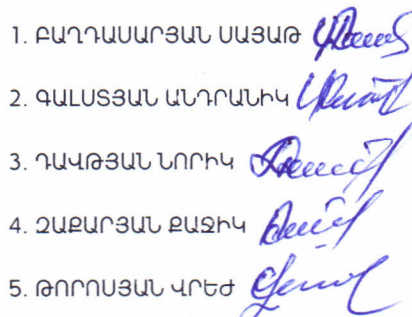 1. ԲԱՂԴԱՍԱՐՅԱՆ ՍԱՅԱԹ
2. ԳԱԼՍՏՅԱՆ ԱՆԴՐԱՆԻԿ
3. ԴԱՎԹՅԱՆ ՆՈՐԻԿ
4. ԶԱՔԱՐՅԱՆ ՔԱՋԻԿ
5. ԹՈՐՈՍՅԱՆ ՎՐԵԺ